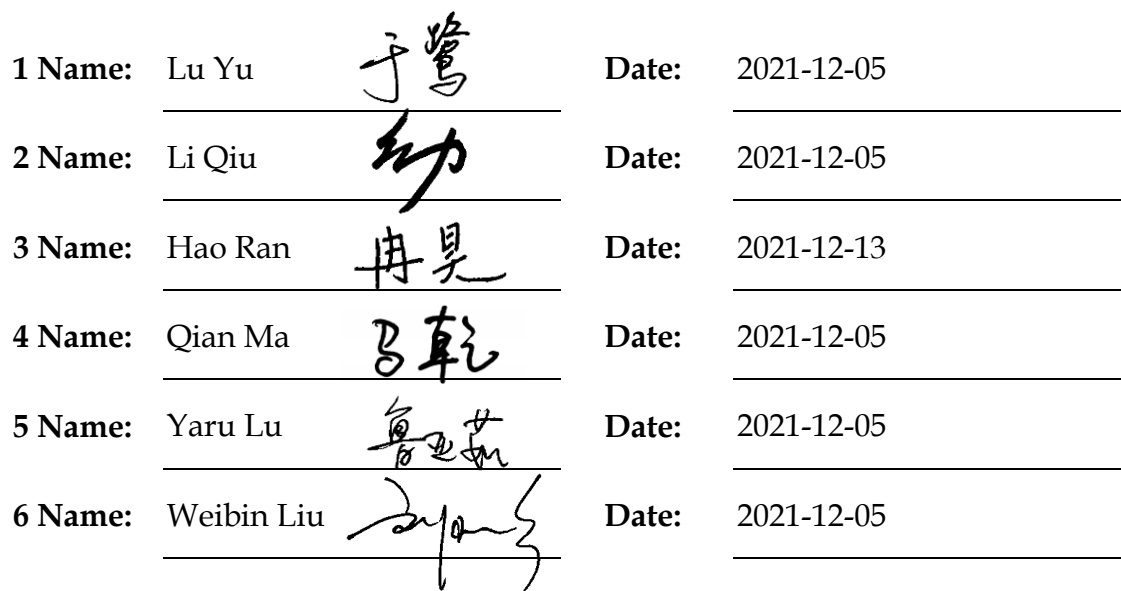 1 Name: Lu Yu 于鹭 Date: 2021-12-05
2 Name: Li Qiu Date: 2021-12-05
3 Name: Hao Ran 冉昊 Date: 2021-12-13
4 Name: Qian Ma 马乾 Date: 2021-12-05
5 Name: Yaru Lu 鲁亚茹 Date: 2021-12-05
6 Name: Weibin Liu Date: 2021-12-05